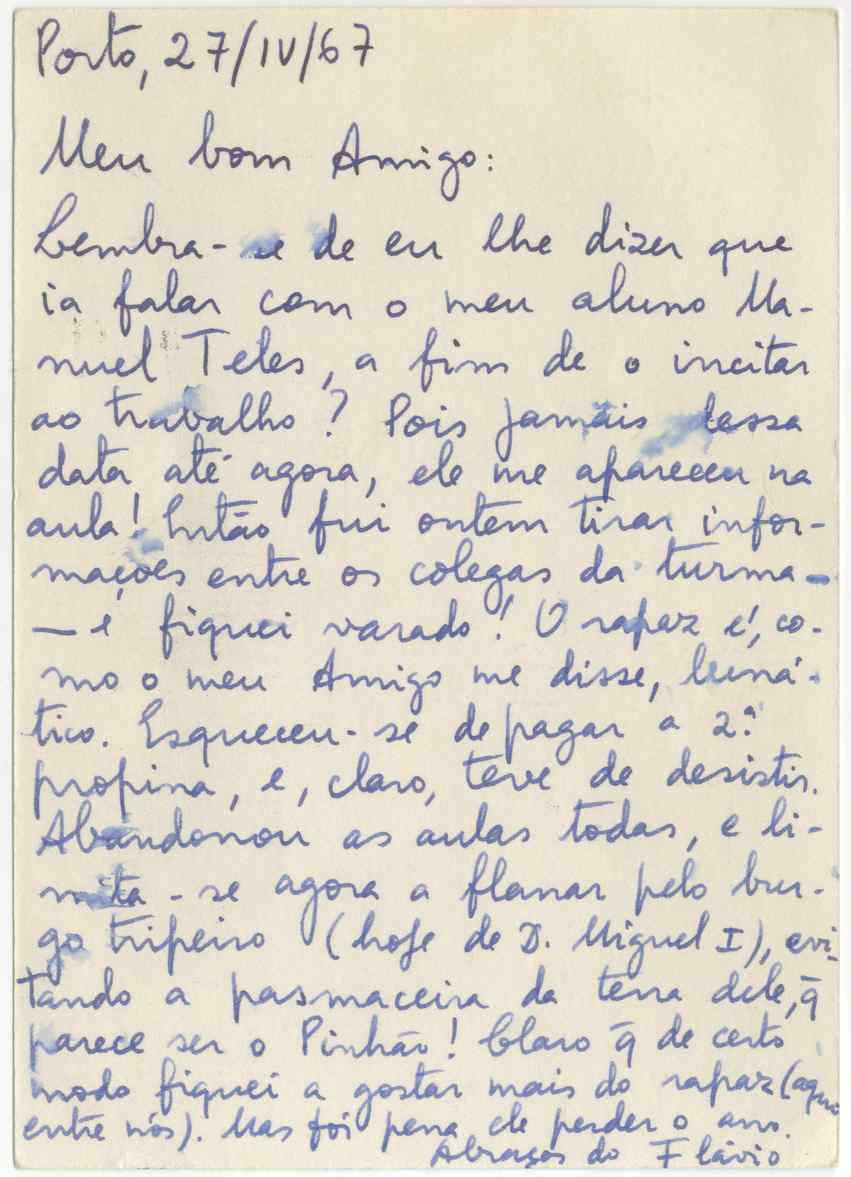 Porto, 27/IV/67
Meu bom Amigo:
Lembra-se de eu lhe dizer que
ia falar com o meu aluno Ma-
nuel Teles, a fim de o incitar
ao trabalho? Pois jamais dessa
data até agora, ele me apareceu na
aula! Então fui ontem tirar infor-
mações entre os colegas da turma —
— e fiquei varado! O rapaz é, co-
mo o meu Amigo me disse, luná-
tico. Esqueceu-se de pagar a 2.ª
propina, e, claro, teve de desistir.
Abandonou as aulas todas, e li-
mita-se agora a flanar pelo bur-
go tripeiro (hoje de D. Miguel I), evi-
tando a pasmaceira da terra dele, q̄
parece ser o Pinhão! Claro q̄ de certo
modo fiquei a gostar mais do rapaz (aqui
entre nós). Mas foi pena ele perder o ano.
Abraços do Flávio